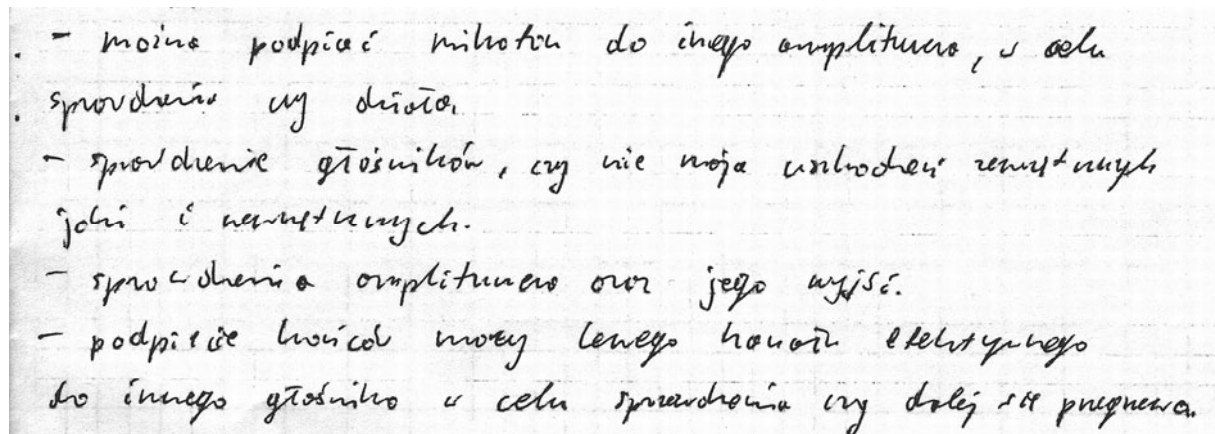 - można podpiąć mikrofon do inego amplitunera, w celu
sprawdzenia czy działa.
- sprawdzenie głośników, czy nie mają uszkodzeń zewnętrznych
jaki i wewnętrznych.
- sprawdzenia amplitunera oraz jego wyjść.
- podpięcie końców mocy lewego kanału elektrycznego
do innego głośnika w celu sprawdzenia czy dalej się przegrzewa.